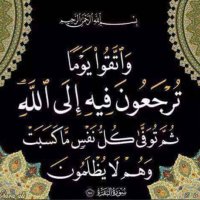 بِسْمِ اللَّهِ الرَّحْمَٰنِ الرَّحِيمِ
وَاتَّقُوا يَوْمًا
تُرْجَعُونَ فِيهِ إِلَى اللَّهِ
ثُمَّ تُوَفَّىٰ كُلُّ نَفْسٍ مَّا كَسَبَتْ
وَهُمْ لَا يُظْلَمُونَ
سُورَةُ الْبَقَرَةِ